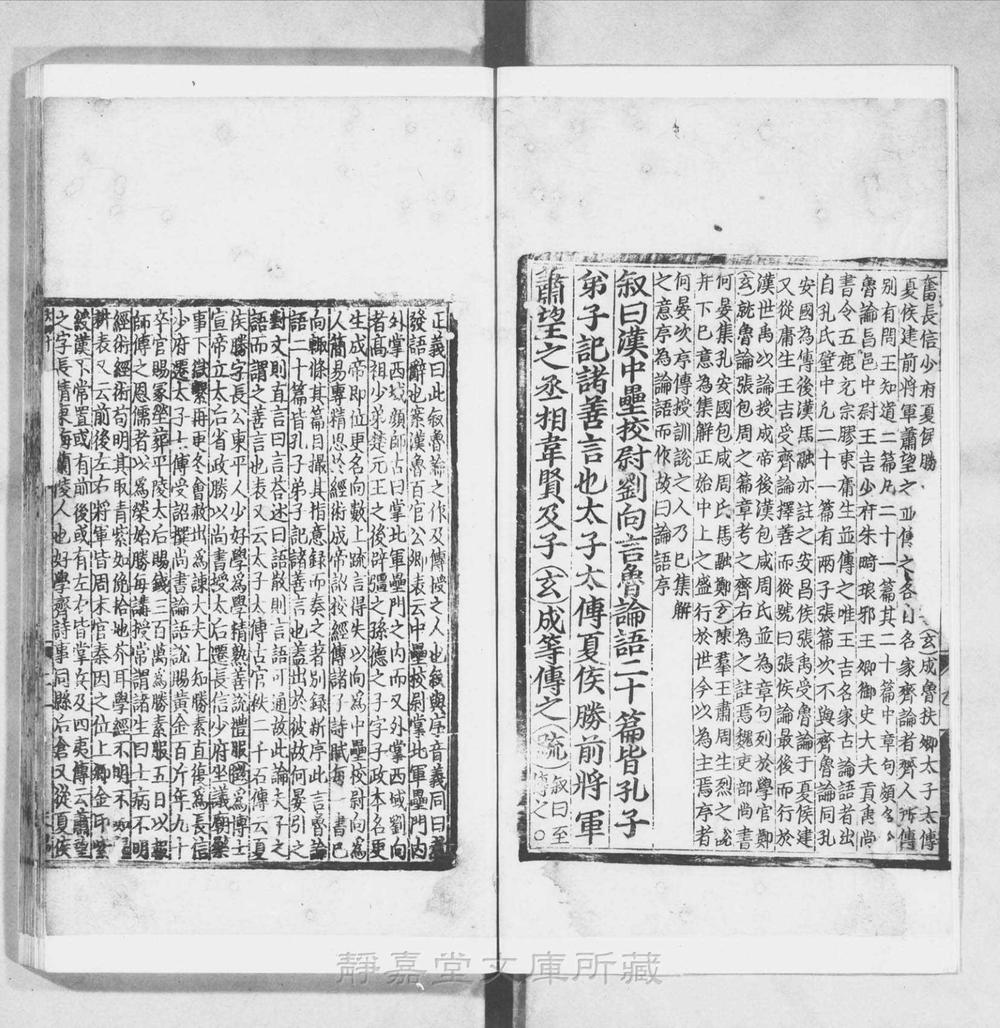 奮長信少府夏侯勝
玄成魯扶卿太子太傅
夏侯建前將軍蕭望之並傳之各自名家齊論者齊人所傳
別有問王知道二篇凡二十一篇其二十篇中章句頗多
魯論昌邑中尉王吉少府朱畸琅邪王卿御史大夫貢禹尚
書令五鹿充宗膠東庸生並傳之唯王吉名家古論語者出
自孔氏壁中凢二十一篇有兩子張篇次不與齊魯論同孔
安國為傳後漢馬融亦註之安昌侯張禹受魯論于夏侯建
又從庸生王吉受齊論擇善而從號曰張侯論最後而行於
漢世禹以論授成帝後漢包咸周氏並為章句列於學官鄭
玄就魯論張包周之篇章考之齊古為之註焉魏吏部尚書
何晏集孔安國包咸周氏馬融鄭玄陳羣王肅周生烈之說
并下已意為集解正始中上之盛行於世今以為主焉序者
何晏次序傳授訓說之人乃已集解
之意序為論語而作故曰論語序
叙曰漢中壘校尉劉向言魯論語二十篇皆孔子
弟子記諸善言也太子太傅夏侯勝前將軍
蕭望之丞相韋賢及子玄成等傳之疏叙曰至傳之〇
正義曰此叙魯論之作及傳授之人也叙與序音義同曰者
發語辭也案漢書百官公卿表云中壘校尉掌北軍壘門內
外掌西域顏師古曰掌北軍壘門之內而又外掌西域劉向
者高祖少弟楚元王之後辟彊之孫德之子字子政本名更
生成帝即位更名向數上疏言得失以向為中壘校尉向為
人簡易專精思於經術成帝詔校經傳諸子詩賦每一書已
向輒條其篇目撮其指意録而奏之著別録新序此言魯論
語二十篇皆孔子弟子記諸善言也蓋出於彼故何晏引之
對文則直言曰言荅述曰語散則言語可通故此論夫子之
語而謂之善言也表又云太子太傅古官秩二千石傳云夏
侯勝字長公東平人少好學為學精熟善說禮服徵為博士
宣帝立太后省政勝以尚書授太后遷長信少府坐議廟樂
事下獄繫再更冬會赦出為諫大夫上知勝素直復為長信
少府遷太子太傅受詔撰尚書論語說賜黃金百斤年九十
卒官賜冢塋葬平陵太后賜錢三百萬為勝素服五日以報
師傅之恩儒者以為榮始勝每講授常謂諸生曰士病不明
經術經術苟明其取青紫如俛拾地芥耳學經不明不如歸
耕表又云前後左右將軍皆周末官秦因之位上卿金印紫
綬漢不常置或有前後或有左右皆掌兵及四夷傳云蕭望
之字長倩東海蘭陵人也好學齊詩事同縣后倉又從夏侯
靜嘉堂文庫所藏